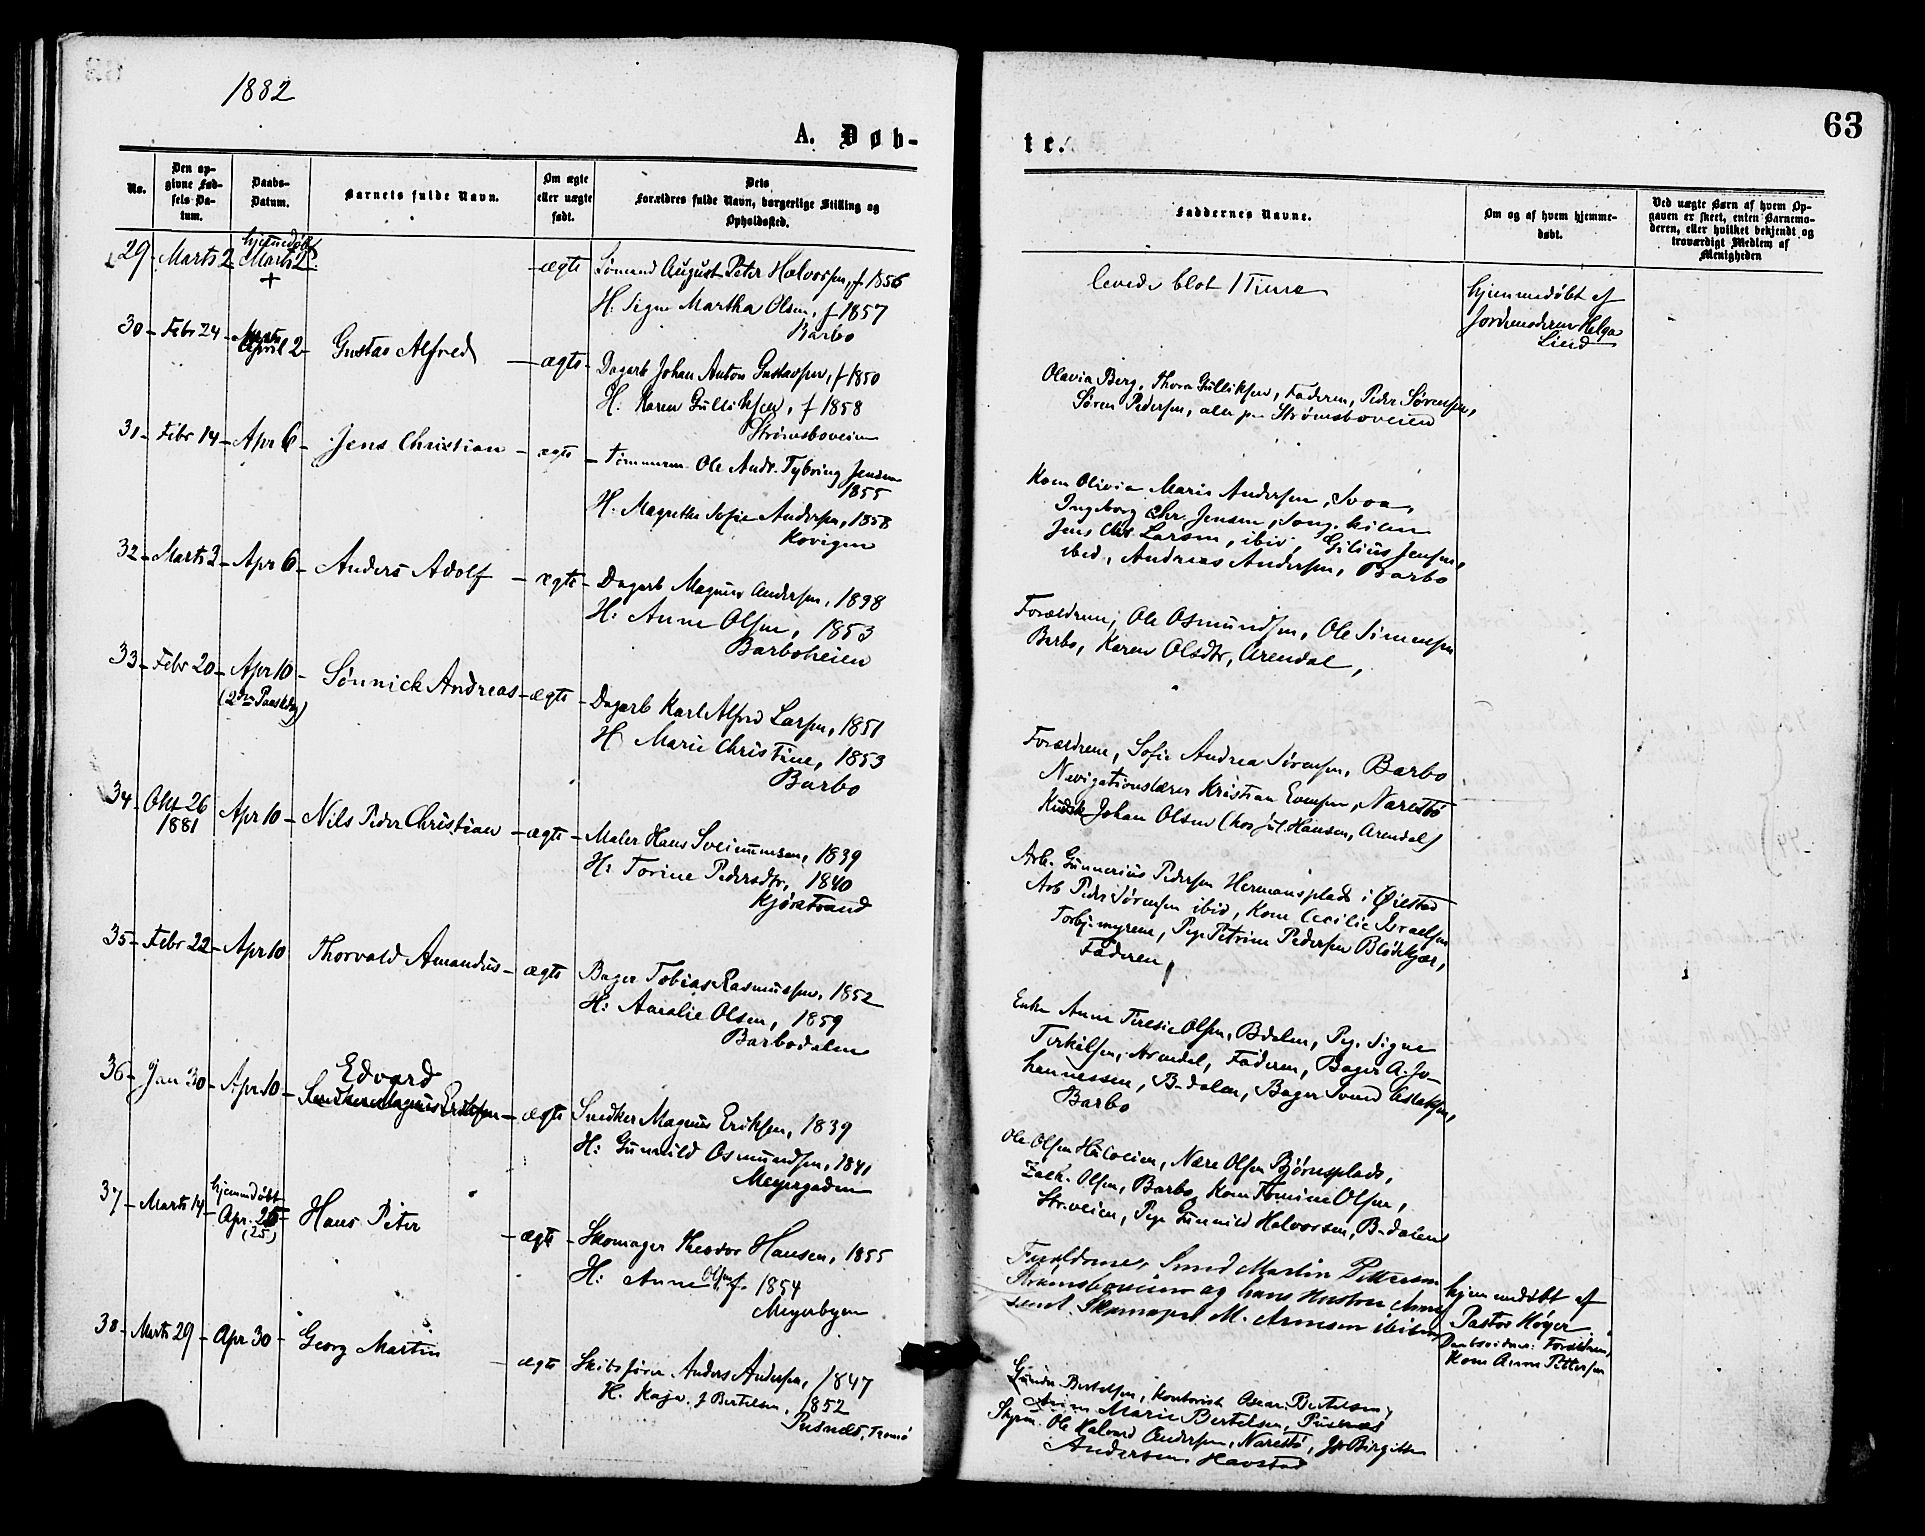 1882
63
A. Døb-
te.
No.
Den op-
givne Fød-
sels Da-
tum.
Daabs-
Datum.
Barnets fulde Navn.
Om ægte
eller uægte
født.
Dets
Forældres fulde Navn, borgerlige Stilling og
Opholdssted.
Faddernes Navne.
Om og af hvem hjemme-
døbt.
Ved uægte Børn af hvem Op-
gaven er skeet, enten Barnemo-
deren, eller hvilket bekjendt og
troværdigt Medlem af
Menigheden
29 - Marts 2 hjemmedøbt Marts 2 + - ægte Sømand August Peter Halvorsen, f 1856
H: Signe Martha Olsen, f 1857
Barbo
levede blot 1 Time
hjemmedøbt af
Jordemoderen Helga
Lind
30 - Febr 24 - April 2 - Gustav Alfred - ægte - Dagarb Johan Anton Gustavsen, f 1850
H: Karen Gulliksen, f 1858
Strømsboveien
Olavia Berg, Thora Gulliksen, Faderen, Peder Sørensen,
Søren Pedersen, alle paa Strømsboveien
31 - Febr 14 - Apr 6 - Jens Christian - ægte - Tømmerm. Ole Andr. Tybring Jensen
1855
H. Magrethe Sofie Andersen, 1858
Kovigen
Kone Olivia Marie Andersen,
Ingeborg Chr. Jensen, Songekilen
Jens Chr Larsen, ibid, Gilius Jensen,
ibid, Andreas Andersen, Barbo
32 - Marts 3 - Apr 6 - Anders Adolf - ægte - Dagarb Magnus Andersen, 1898
H: Anne Olsen, 1853
Barboheien
Forældrene, Ole Osmundsen, Ole Simensen
Barbo, Karen Olsdtr, Arendal,
33 - Febr 20 - Apr 10 - (2den Paaskedag) Sønnick Andreas - ægte - Dagarb Karl Alfred Larsen, 1851
H Marie Christine, 1853
Barbo
Forældrene, Sofie Andrea Sørensen, Barbo
Navigationslærer Kristian Evensen, Narestø
Kudsk Johan Olsen (hos Jul. Hansen, Arendal)
34 - Okt 26 1881 Apr 10 - Nils Peder Christian - ægte - Maler Hans Sveinumsen, 1839
H: Torine Pedersdtr, 1840
Kjørstrand
Arb. Gunnerius Pedersen Hermansplads i Øiestad
Arb Peder Sørensen ibid, Kone Cecilie Israelsen
Torbj.myrene, Pige Petrine Pedersen Blødekjær,
Faderen
35 - Febr 22 - Apr 10 Thorvald Amandus - ægte Bager Tobias Rasmussen, 1852
H: Amalie Olsen, 1859
Barbodalen
Enke Anne Teresie Olsen, B.dalen, Pige Signe
Terkilsen, Arendal, Faderen, Bager A. Jo-
hannessen, B-dalen, Bager Svend Aslaksen,
Barbo
36 - Jan 30 - Apr 10 - Edvard - ægte Snedker Magnus Eriksen, 1839
H: Gunnild Osmundsen, 1841
Meyergaden
Ole Olsen Haloeien, Nære Olsen Bjørnsplads,
Zach. Olsen, Barbo, Kone Tomine Olsen,
Str.veien, Pige Gunnild Halvorsen, B-dalen
37 - Marts 14 - hjemmedøbt Apr. 25 (25) Hans Peter - ægte - Skomager Theodor Hansen, 1855
H: Anne Olsen f. 1854
Meyerbyen
Forældrene, Smed Martin Pettersen
Strømsboveien og hans Hustru Anne
samt Skomager M. Arnesen ibidem
hjemmedøbt af
Pastor Høyer
Daabsvidner: Forældrene,
Kone Anne Pettersen
38 - Marts 29 - Apr 30 - Georg Martin - ægte Skibsfører Anders Andersen, 1847
H. Kaja. f Bertelsen, 1852
Pusnes, Tromø
Gunder Bertelsen, Kontorist Oscar Bertelsen,
Anne Marie Bertelsen, Pusnæs
Styrm. Ole Halvard Andersen, Narestø, Birgitte
Andersen Havstad